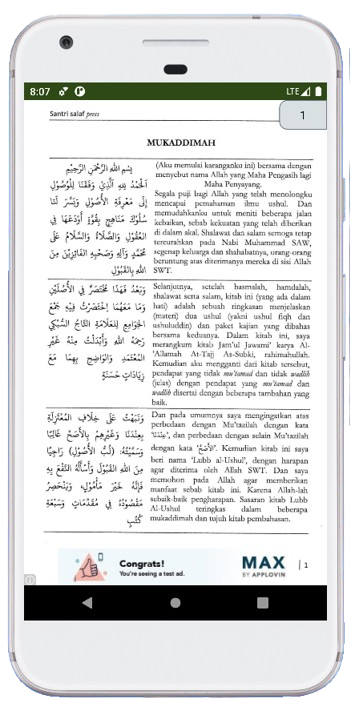 8:07
LTE
Santri salaf press
1
MUKADDIMAH
بِسْمِ اللهِ الرَّحْمَنِ الرَّحِيْمِ
اَلْحَمْدُ لِلهِ الَّذِيْ وَفَّقَنَا لِلْوُصُوْلِ
إِلَى مَعْرِفَةِ الْأُصُوْلِ وَيَسَّرَ لَنَا
سُلُوْكَ مَنَاهِجَ بِقُوَّةٍ أَوْدَعَهَا فِي
الْعُقُوْلِ وَالصَّلَاةُ وَالسَّلَامُ عَلَى
مُحَمَّدٍ وَآلِهِ وَصَحْبِهِ الْفَائِزِيْنَ مِنَ
اللهِ بِالْقَبُوْلِ
(Aku memulai karanganku ini) bersama dengan
menyebut nama Allah yang Maha Pengasih lagi
Maha Penyayang.
Segala puji bagi Allah yang telah menolongku
mencapai pemahaman ilmu ushul. Dan
memudahkanku untuk meniti beberapa jalan
kebaikan, sebab kekuatan yang telah diberikan
di dalam akal. Shalawat dan salam semoga tetap
tercurahkan pada Nabi Muhammad SAW,
segenap keluarga dan shahabatnya, orang-orang
beruntung atas diterimanya mereka di sisi Allah
SWT.
وَبَعْدُ فَهَذَا مُخْتَصَرٌ فِي الْأَصْلَيْنِ
وَمَا مَعَهُمَا اِخْتَصَرْتُ فِيْهِ جَمْعَ
الْجَوَامِعِ لِلْعَلَّامَةِ التَّاجِ السُّبْكِي
رَحِمَهُ اللهُ وَأَبْدَلْتُ مِنْهُ غَيْرَ
الْمُعْتَمَدِ وَالْوَاضِحِ بِهِمَا مَعَ
زِيَادَاتٍ حَسَنَةٍ
Selanjutnya, setelah basmalah, hamdalah,
shalawat serta salam, kitab ini (yang ada dalam
hati) adalah sebuah ringkasan menjelaskan
(materi) dua ushul (yakni ushul fiqh dan
ushuluddin) dan paket kajian yang dibahas
bersama keduanya. Dalam kitab ini, saya
merangkum kitab Jam'ul Jawami' karya Al-
'Allamah At-Tajj As-Subki, rahimahullah.
Kemudian aku mengganti dari kitab tersebut,
pendapat yang tidak mu'tamad dan tidak wadlih
(jelas) dengan pendapat yang mu'tamad dan
wadlih disertai dengan beberapa tambahan yang
baik.
وَنَبَّهْتُ عَلَى خِلَافِ الْمُعْتَزِلَةِ
بِعِنْدَنَا وَغَيْرِهِمْ بِالْأَصَحِّ غَالِبًا
وَسَمَّيْتُهُ: (لُبَّ الْأُصُوْلِ) رَاجِيًا
مِنَ اللهِ الْقَبُوْلَ وَأَسْأَلُهُ النَّفْعَ بِهِ
فَإِنَّهُ خَيْرُ مَأْمُوْلٍ، وَيَنْحَصِرُ
مَقْصُوْدُهُ فِي مُقَدِّمَاتٍ وَسَبْعَةِ
كُتُبٍ
Dan pada umumnya saya mengingatkan atas
perbedaan dengan Mu'tazilah dengan kata
'عِنْدَنَا', dan perbedaan dengan selain Mu'tazilah
dengan kata 'اَلْأَصَحُّ'. Kemudian kitab ini saya
beri nama 'Lubb al-Ushul', dengan harapan
agar diterima oleh Allah SWT. Dan saya
memohon pada Allah agar memberikan
manfaat sebab kitab ini. Karena Allah-lah
sebaik-baik pengharapan. Sasaran kitab Lubb
Al-Ushul teringkas dalam beberapa
mukaddimah dan tujuh kitab pembahasan.
Congrats!
You're seeing a test ad.
MAX
BY APPLOVIN
| 1